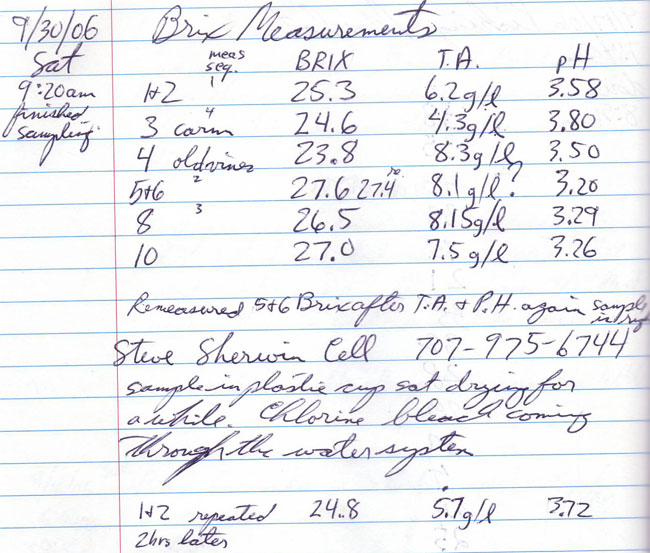 9/30/06 Brix Measurements
Sat meas seq. BRIX T.A. pH
9:20am 1+2 1 25.3 6.2g/l 3.58
finished 3 carm 4 24.6 4.3g/l 3.80
sampling 4 oldvines 23.8 8.3g/l 3.50
5+6 2 27.6 27.4 re 8.1g/l? 3.20
8 3 26.5 8.15g/l 3.29
10 27.0 7.5g/l 3.26
Remeasured 5+6 Brix after T.A. + P.H. again sample
Steve Sherwin Cell 707-975-6744
sample in plastic cup sat drying for
awhile. Chlorine bleach coming
through the water system
1+2 repeated 24.8 5.7g/l 3.72
2hrs later